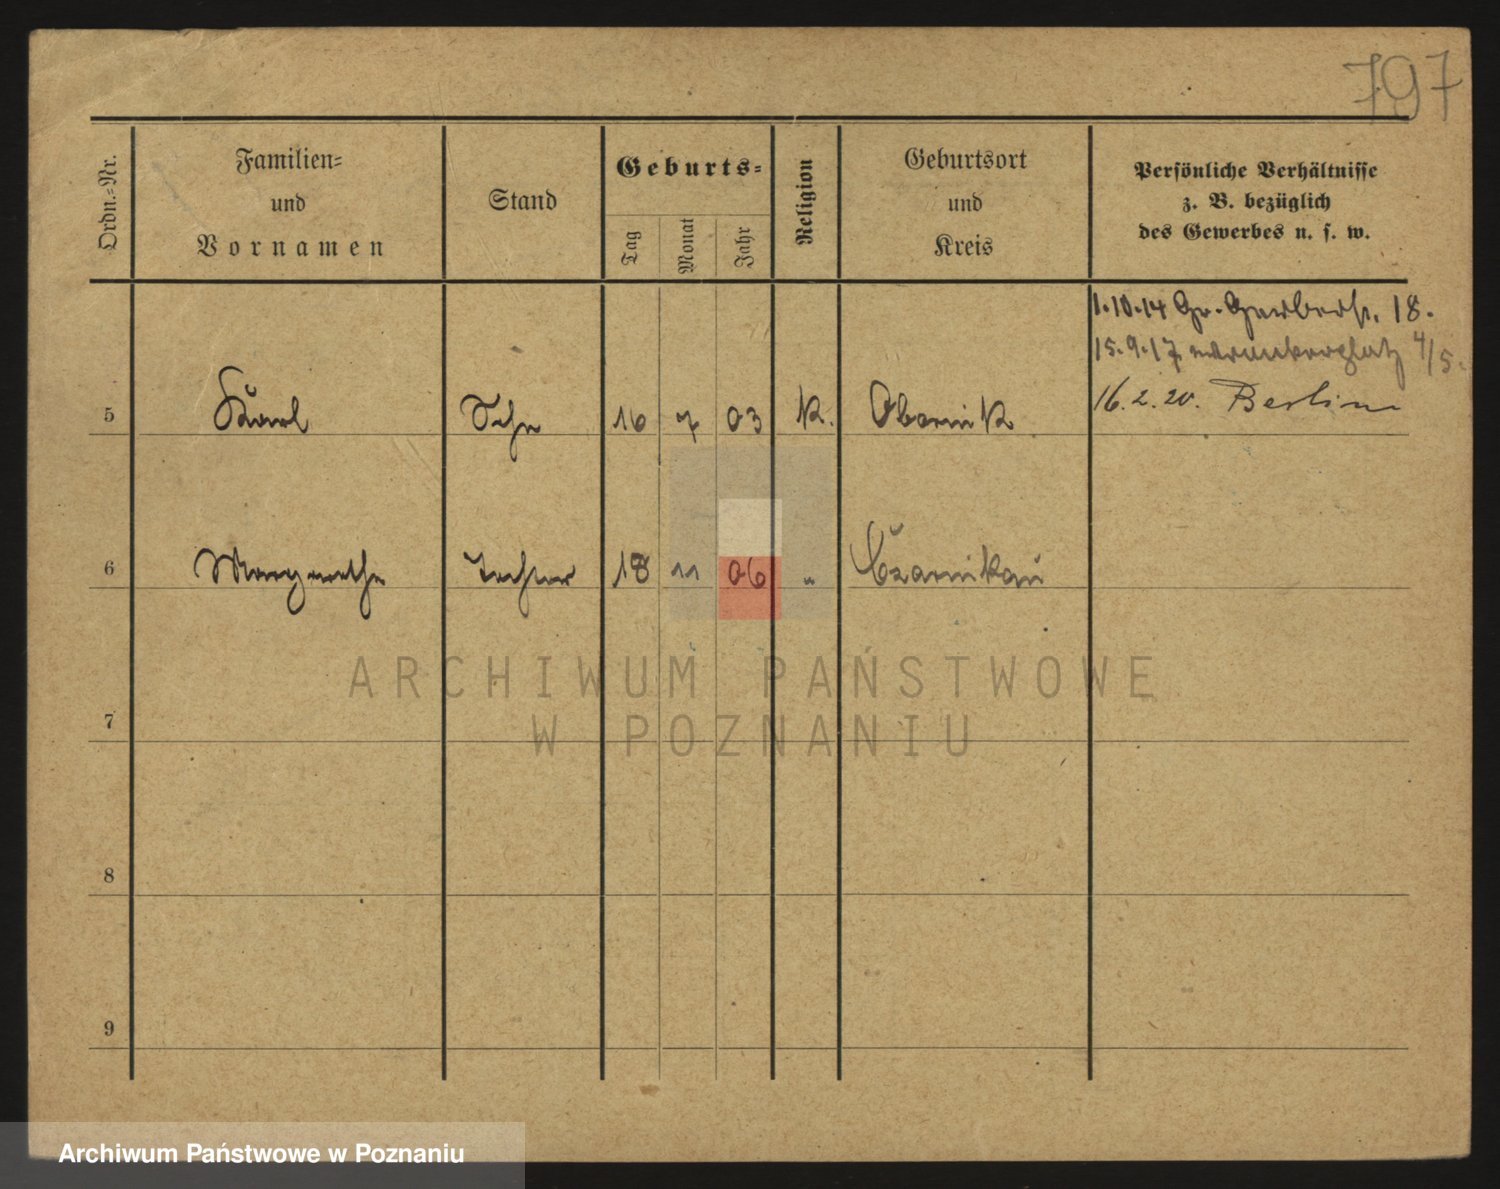 797
Ordn.=Nr.
Familien=
und
Vornamen
Stand
Geburts=
Tag
Monat
Jahr
Religion
Geburtsort
und
Kreis
Persönliche Verhältnisse
z. B. bezüglich
des Gewerbes u. s. w.
1.10.14 Gr. Gerberstr. 18.
15.9.17 4/5.
16.2.20. Berlin
5 Karl Sohn 16 7 03 K. Obornik
6 Margarethe Tochter 18 11 06 " Czarnikau
7
8
9
ARCHIWUM PAŃSTWOWE
W POZNANIU
Archiwum Państwowe w Poznaniu